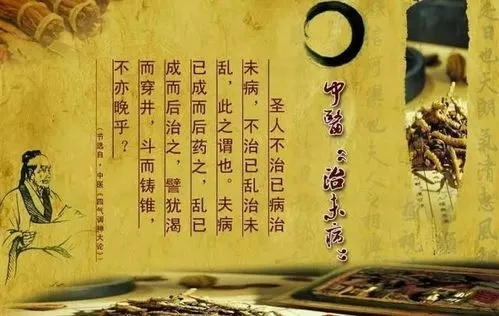 是日也天朗氣清惠風
中醫“治未病”
圣人不治已病治
未病，不治已乱治未
乱，此之谓也。夫病
已成而后药之，乱已
成而后治之，譬犹渴
而穿井，斗而铸锥，
不亦晚乎？
（节选自·中医《四气调神大论》）